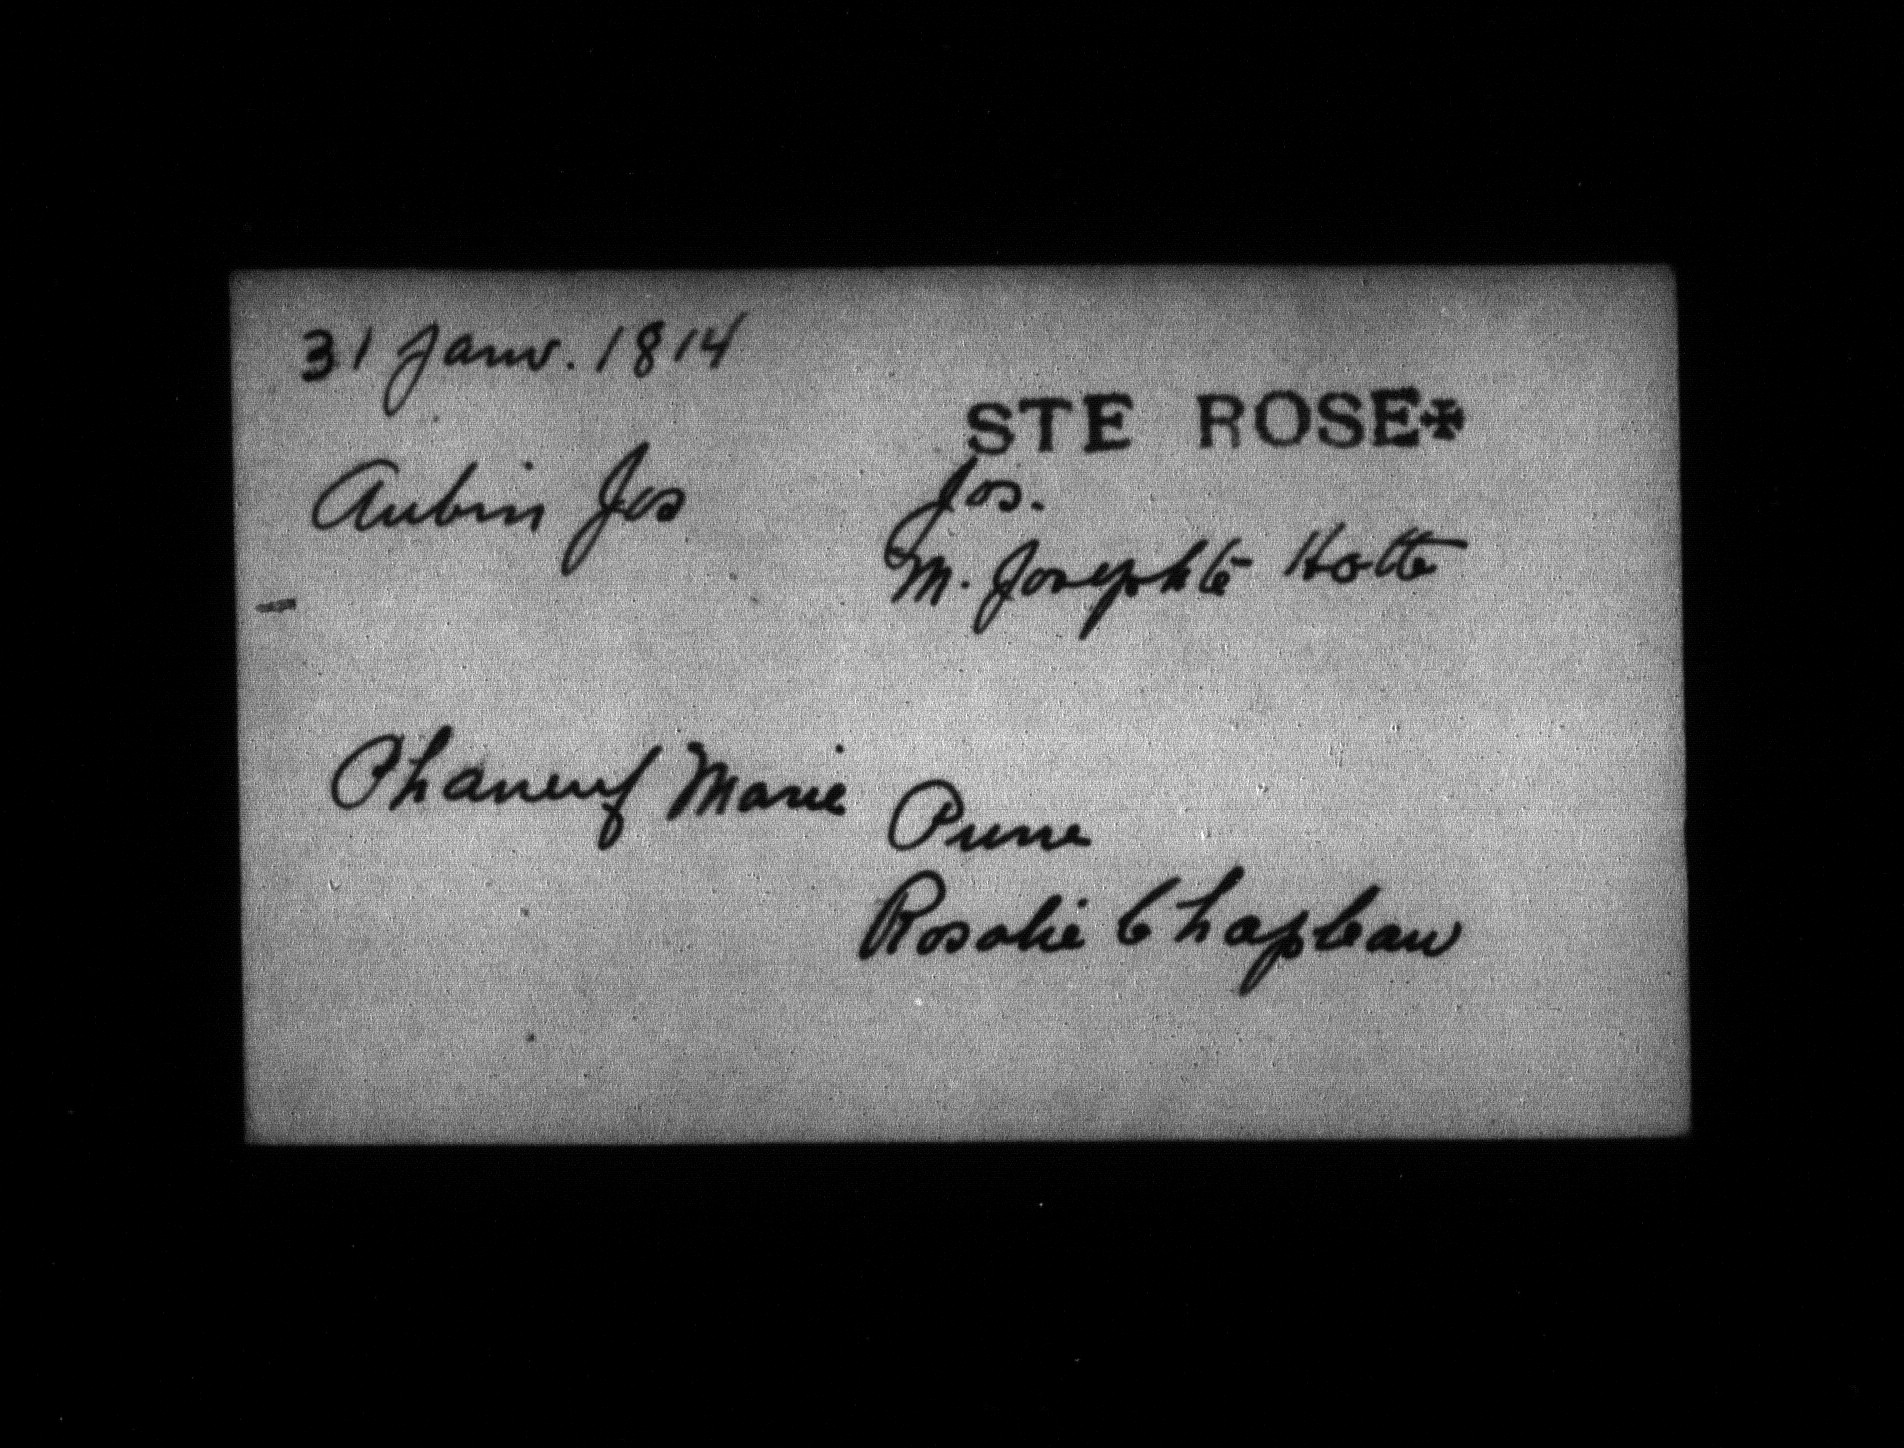 31 Janv. 1814
STE ROSE✠
Aubin Jos
Jos.
M. Josephte Hotte
Phaneuf Marie
Pierre
Rosalie Chapleau